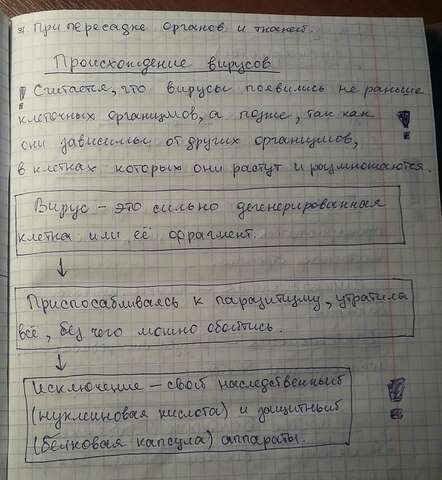 3. При пересадке органов и тканей.
Происхождение вирусов
! Считается, что вирусы появились не раньше
клеточных организмов, а позже, так как !
они зависимы от других организмов,
в клетках которых они растут и размножаются.
Вирус – это сильно дегенерированная
клетка или её фрагмент.
↓
Приспосабливаясь к паразитизму, утратила
всё, без чего можно обойтись.
↓
Исключение – свой наследственный !
(нуклеиновая кислота) и защитный
(белковая капсула) аппараты.